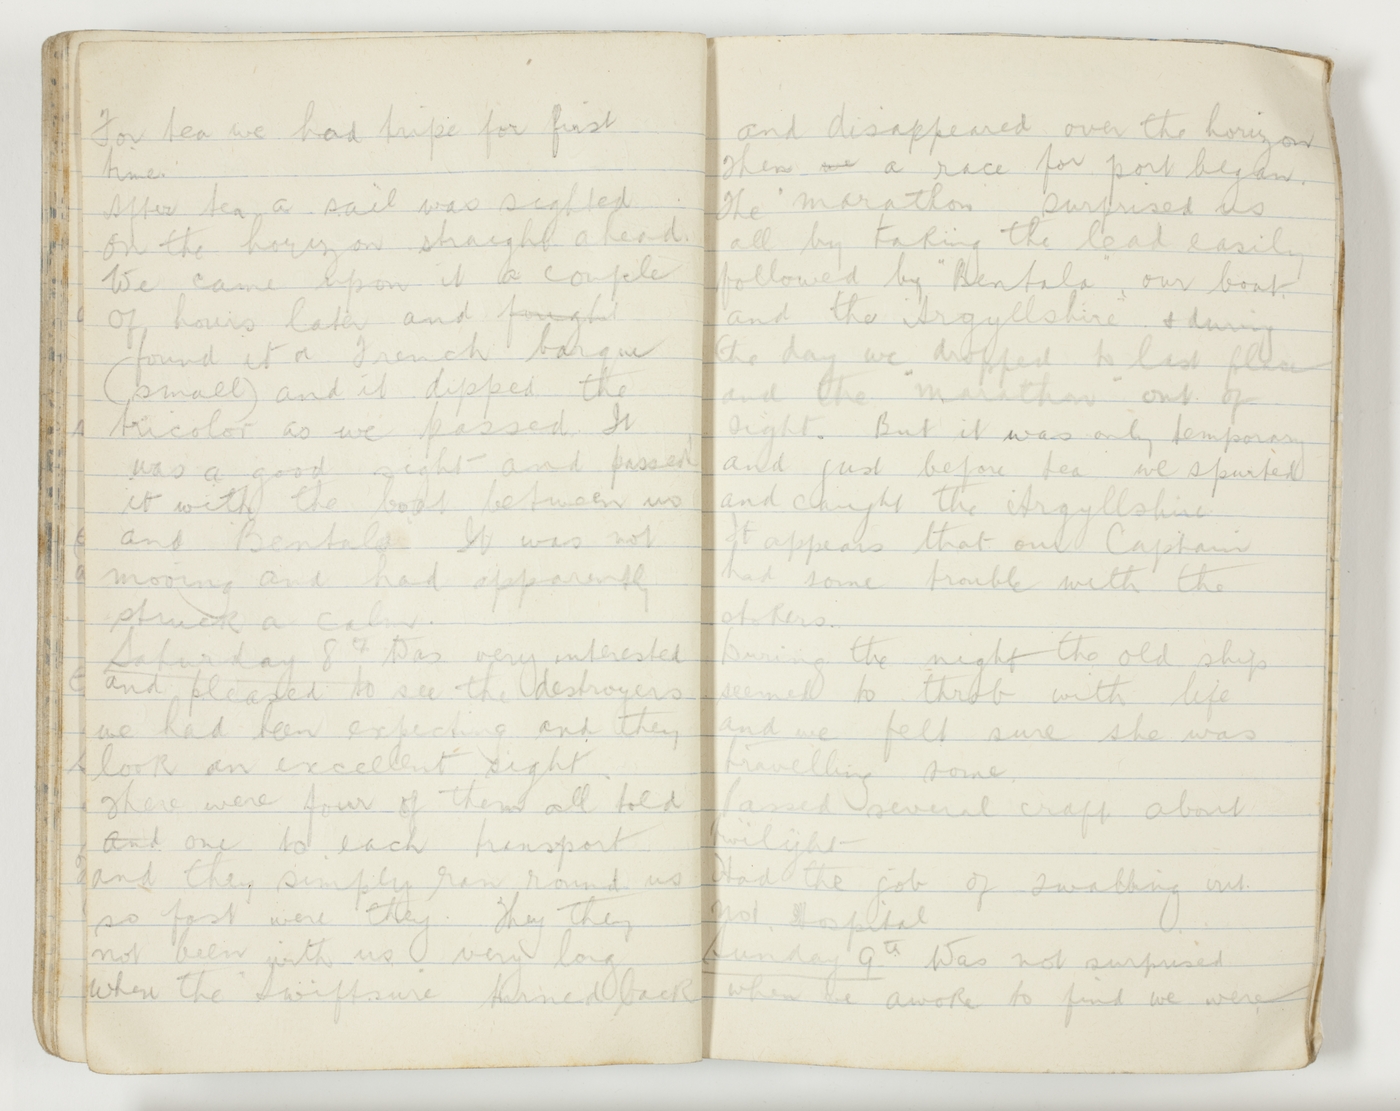 For tea we had tripe for first
time.
After tea a sail was sighted
on the horizon straight ahead.
We came upon it a couple
of hours later and fought
found it a French barque
(small) and it dipped the
tricolor as we passed It
was a good sight and passed
it with the boat between us
and Bentala. It was not
moving and had apparently
struck a calm.
Saturday 8th Was very interested
and pleased to see the destroyers
we had been expecting and they
look an excellent sight.
There were four of them all told
and one to each transport
and they simply ran round us
so fast were they. They they
not been with us very long
when the "Swiftsure turned back
and disappeared over the horizon
Then we a race for port began.
The "Marathon surprised us
all by taking the lead easily
followed by "Bentala", our boat.
and the "Argyllshire" & during
the day we dropped to last place
and the "Marathon" out of
sight. But it was only temporary
and just before tea we spurted
and caught the Argyllshire
It appears that our Captain
had some trouble with the
stokers.
During the night the old ship
seemed to throb with life
and we felt sure she was
travelling some.
Passed several craft about
twilight
Had the job of swabbing out
Hospital
Sunday 9th Was not surprised
when we awoke to find we were